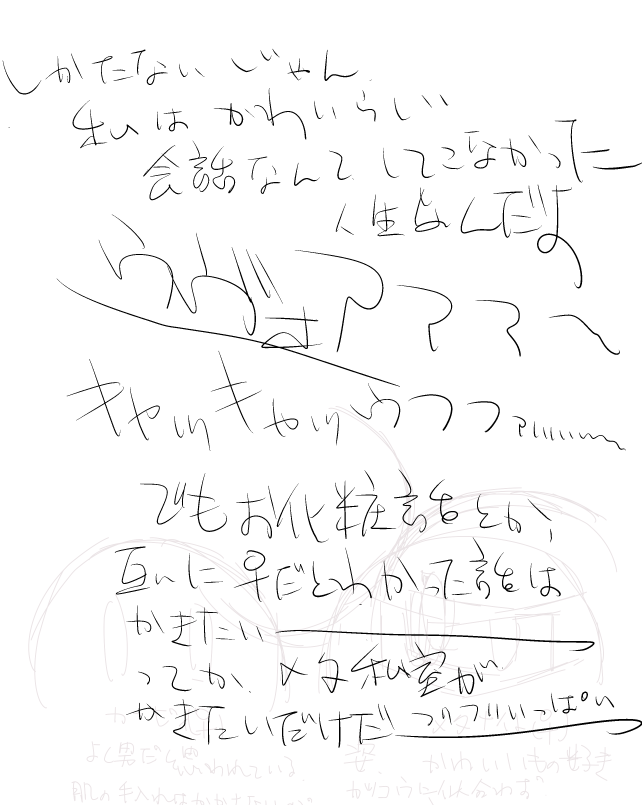 しかたないじゃん
私はかわいらしい
会話なんてしてこなかった
人生なんだよ
キャッキャッウフフ
でもお化粧話とか、
互いに早だとわかった話は
かきたい
ってか、メタ私室が
かきたいだけだフリフリいっぱい
よく男だと思われている
姿 かわいいもの好き
肌の手入れはかかさない
ガッコウに似合わず